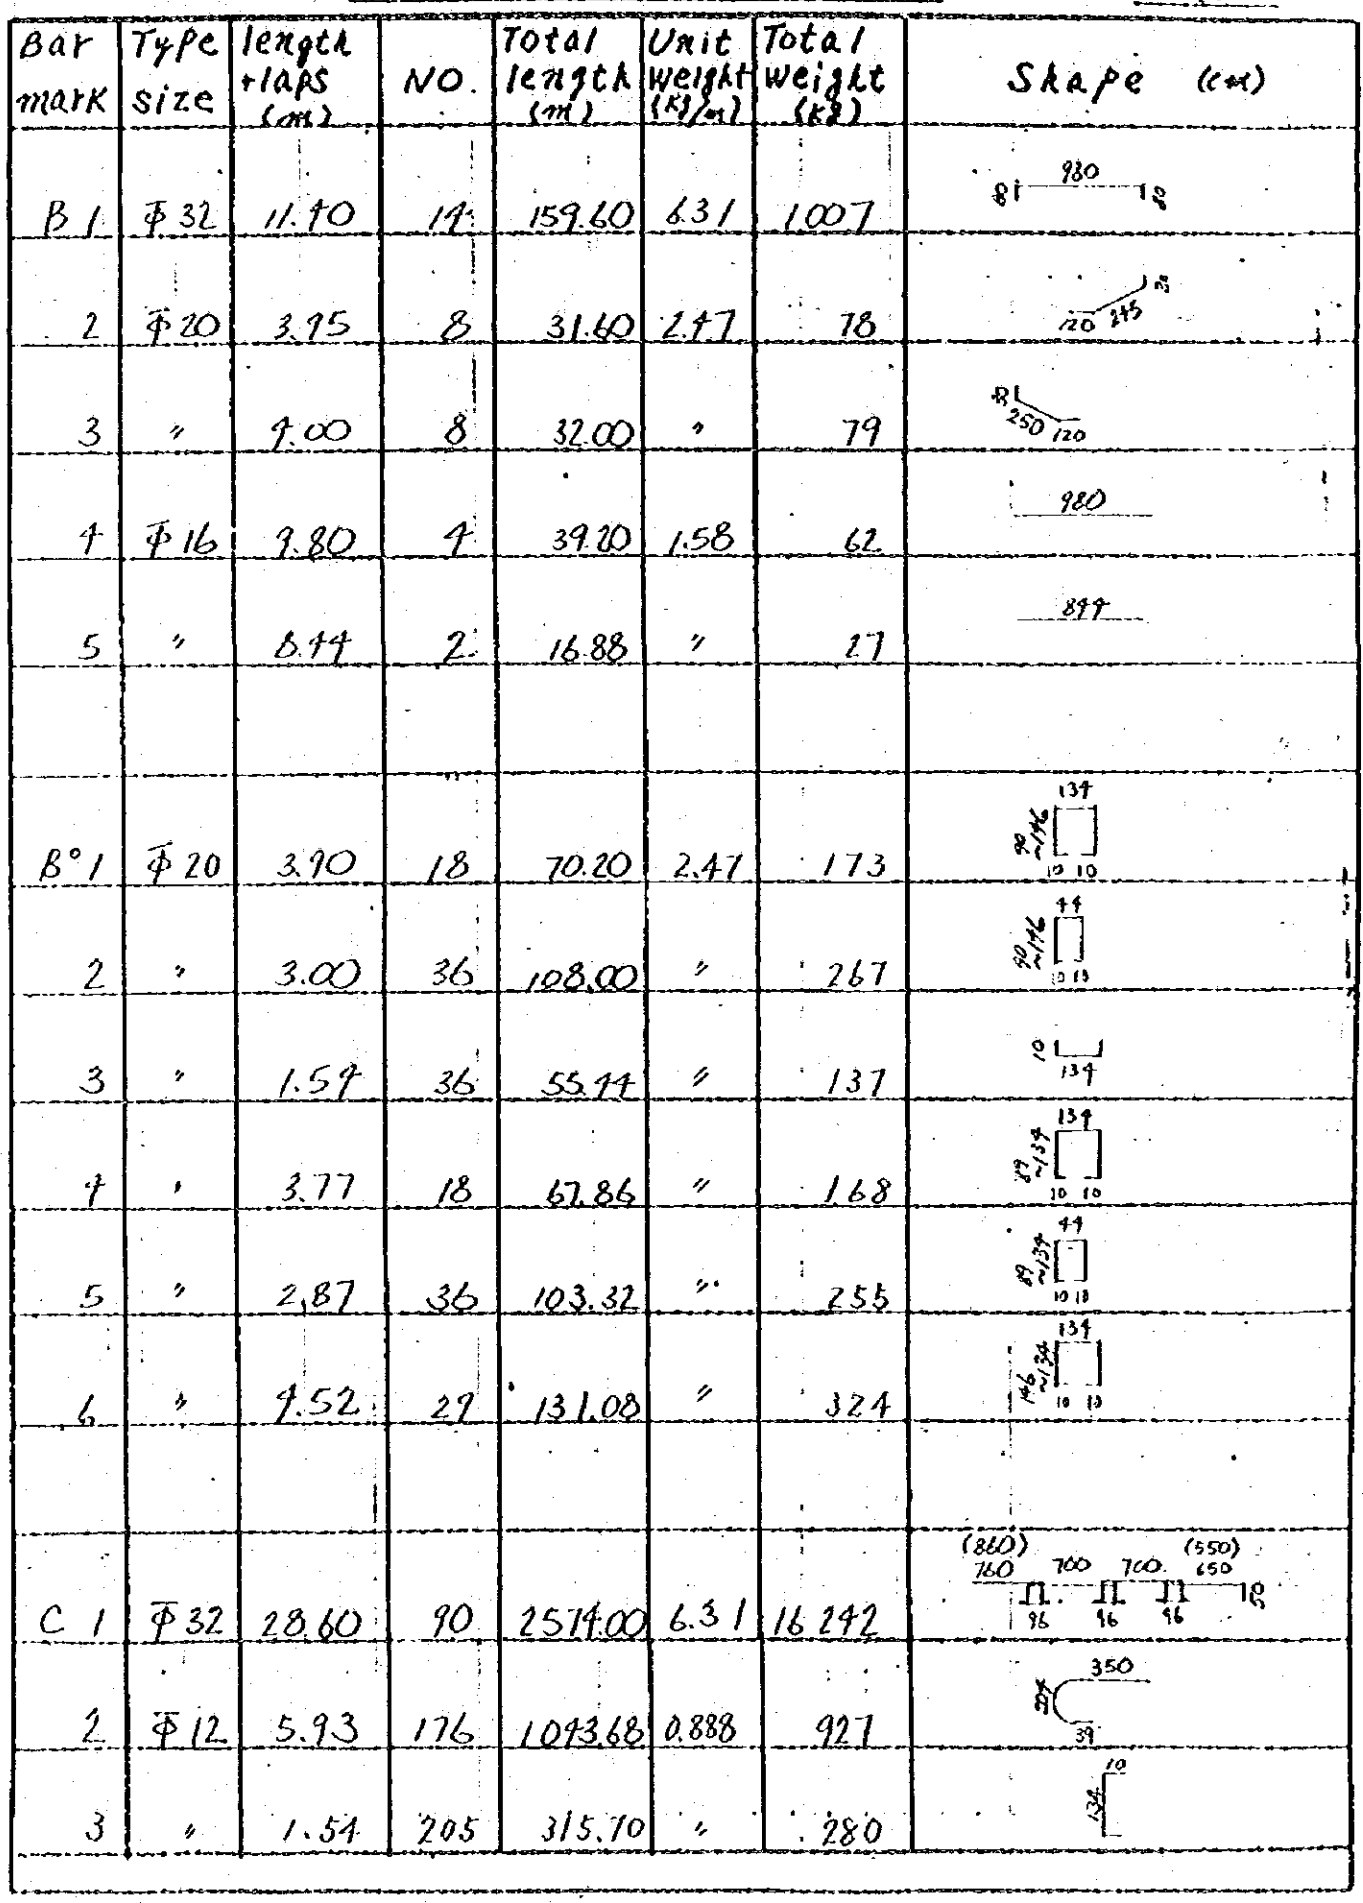 Bar mark | Type size | length +laps (m) | NO. | Total length (m) | Unit weight (kg/m) | Total weight (kg) | Shape (cm)
B 1 | Φ 32 | 11.40 | 14 | 159.60 | 6.31 | 1007 | 80 980 80
2 | Φ 20 | 3.95 | 8 | 31.60 | 2.47 | 78 | 120 245 30
3 | 〃 | 4.00 | 8 | 32.00 | 〃 | 79 | 30 250 120
4 | Φ 16 | 9.80 | 4 | 39.20 | 1.58 | 62 | 980
5 | 〃 | 8.44 | 2 | 16.88 | 〃 | 27 | 844
B° 1 | Φ 20 | 3.90 | 18 | 70.20 | 2.47 | 173 | 134 90 ~146 10 10
2 | 〃 | 3.00 | 36 | 108.00 | 〃 | 267 | 44 90 ~146 10 10
3 | 〃 | 1.54 | 36 | 55.44 | 〃 | 137 | 10 134
4 | 〃 | 3.77 | 18 | 67.86 | 〃 | 168 | 134 89 ~134 10 10
5 | 〃 | 2.87 | 36 | 103.32 | 〃 | 255 | 44 89 ~134 10 10
6 | 〃 | 4.52 | 29 | 131.08 | 〃 | 324 | 134 146 ~134 10 10
C 1 | Φ 32 | 28.60 | 90 | 2574.00 | 6.31 | 16 242 | (860) 760 700 700 (550) 650 96 96 96 50
2 | Φ 12 | 5.93 | 176 | 1043.68 | 0.888 | 927 | 350 204 39
3 | 〃 | 1.54 | 205 | 315.70 | 〃 | 280 | 10 134